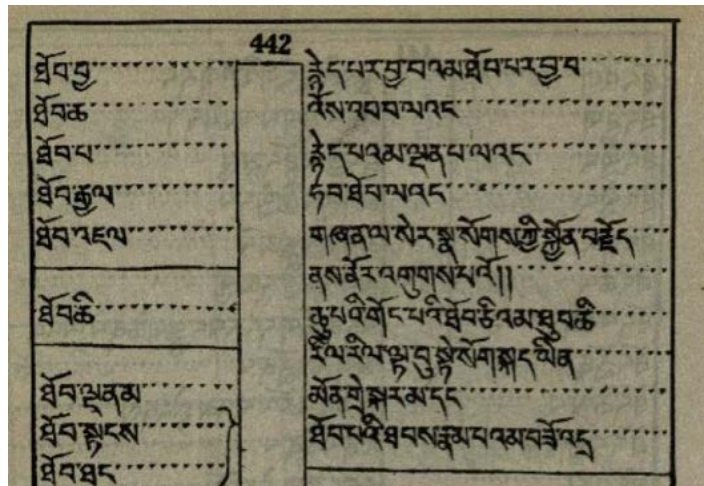 442
ཐོབ་བྱ་ རྙེད་པར་བྱ་བའམ་ཐོབ་པར་བྱ་བ་
ཐོབ་ཆ་ འོས་འབབ་ལའང་
ཐོབ་པ་ རྙེད་པའམ་ལྡན་པ་ལའང་
ཐོབ་རྒྱལ་ ཧབ་ཐོབ་ལའང་
ཐོབ་འཇལ་ གཞན་ལ་སེར་སྣ་སོགས་ཀྱི་སྐྱོན་བརྗོད་
ནས་ནོར་འགུགས་པའོ།།
ཐོབ་ཆི་ ཆུ་པའི་གོང་པའི་ཐོབ་ཅིའམ་ཐུབ་ཆི་
རིལ་རིལ་ལྟ་བུ་སྟེ་སོག་སྐད་ཡིན་
ཐོབ་ལྡནམ་ མོན་གྲེ་སྐར་མ་དང་
ཐོབ་སྟངས་ ཐོབ་པའི་ཐབས་རྣམ་པའམ་བཟོ་འདྲ་
ཐོབ་ཐང་